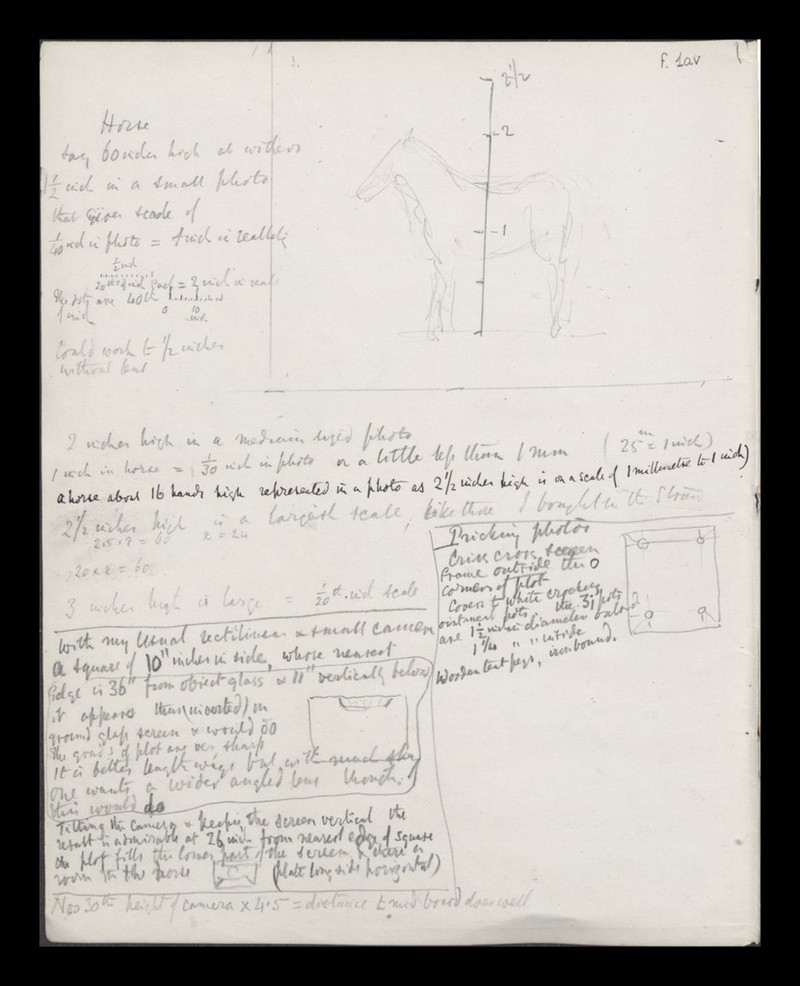 f. 1av
2 1/2
2
1
Horse
say 60 inches high at withers
1 1/2 inch in a small photo
that gives scale of
1/40 inch in photo = 1 inch in reality
1/2 inch
= 2 inch in real
The dots are 40th
of inch
0 10
inch
Could work to 1/2 inches
without lens
2 inches high in a medium sized photo
1 inch in horse = 1/30 inch in photo or a little less than 1 mm (25 mm = 1 inch)
a horse about 16 hands high represented in a photo as 2 1/2 inches high is on a scale of 1 millimetre to 1 inch)
2 1/2 inches high is a largish scale, like those I bought in the Strand
2.5 x x = 60 x = 24
20 x x = 60
3 inches high is large = 1/20th inch scale
With my usual rectilinear & small camera
a square of 10" inches in side, whose nearest
edge is 36" from object glass & 11" vertically below
it appears thus (inverted) on
ground glass screen & would do
The of plot are very sharp
It is better lengthways but with much sky
one wants a wider angled lens though
this would do
Tilting the camera & keeping the screen vertical the
result is admirable at 26 inch from nearest edge of square
the plot fills the lower part of the screen & there is
room for the horse (plate long side horizontal)
Pricking photos
Criss cross screen
Frame outside the
corners of plot
Covers to white crockery
ointment pots the 3j pots
are 1 1/2 inch diameter outside
1 1/4 " " inside
Wooden tent pegs, ironbound.
30th height of camera x 4.5 = distance to mid board does well